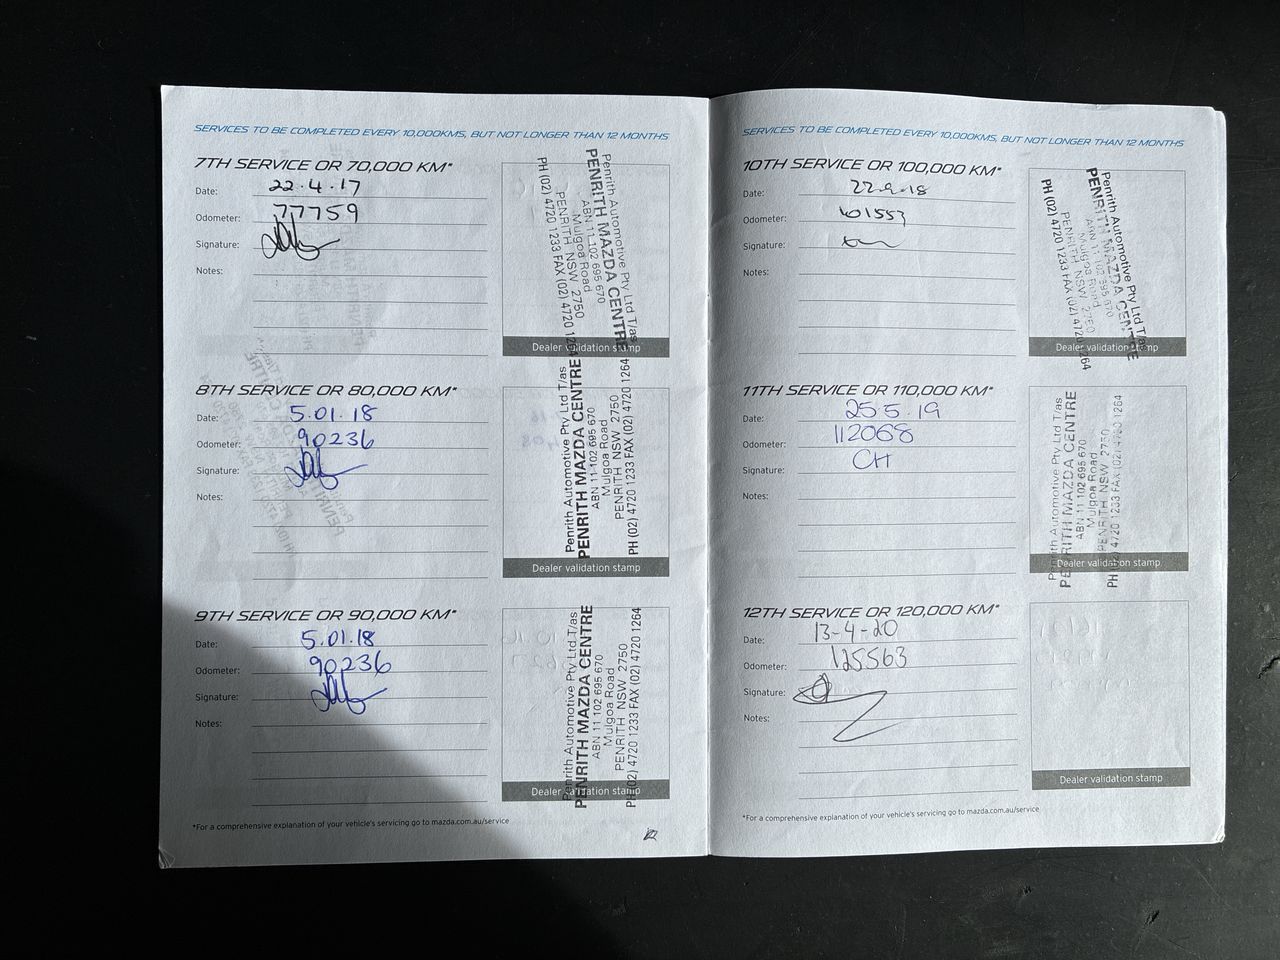 SERVICES TO BE COMPLETED EVERY 10,000KMS, BUT NOT LONGER THAN 12 MONTHS
7TH SERVICE OR 70,000 KM*
Date: 22.4.17
Odometer: 77759
Signature:
Notes:
Penrith Automotive Pty Ltd T/as
PENRITH MAZDA CENTRE
ABN 11 102 695 670
Mulgoa Road
PENRITH NSW 2750
PH (02) 4720 1233 FAX (02) 4720 1264
Dealer validation stamp
8TH SERVICE OR 80,000 KM*
Date: 5.01.18
Odometer: 90236
Signature:
Notes:
Penrith Automotive Pty Ltd T/as
PENRITH MAZDA CENTRE
ABN 11 102 695 670
Mulgoa Road
PENRITH NSW 2750
PH (02) 4720 1233 FAX (02) 4720 1264
Dealer validation stamp
9TH SERVICE OR 90,000 KM*
Date: 5.01.18
Odometer: 90236
Signature:
Notes:
Penrith Automotive Pty Ltd T/as
PENRITH MAZDA CENTRE
ABN 11 102 695 670
Mulgoa Road
PENRITH NSW 2750
PH (02) 4720 1233 FAX (02) 4720 1264
Dealer validation stamp
*For a comprehensive explanation of your vehicle's servicing go to mazda.com.au/service
SERVICES TO BE COMPLETED EVERY 10,000KMS, BUT NOT LONGER THAN 12 MONTHS
10TH SERVICE OR 100,000 KM*
Date: 22.9.18
Odometer: 101553
Signature:
Notes:
Penrith Automotive Pty Ltd T/as
PENRITH MAZDA CENTRE
ABN 11 102 695 670
Mulgoa Road
PENRITH NSW 2750
PH (02) 4720 1233 FAX (02) 4720 1264
Dealer validation stamp
11TH SERVICE OR 110,000 KM*
Date: 25.5.19
Odometer: 112068
Signature: CH
Notes:
Penrith Automotive Pty Ltd T/as
PENRITH MAZDA CENTRE
ABN 11 102 695 670
Mulgoa Road
PENRITH NSW 2750
PH (02) 4720 1233 FAX (02) 4720 1264
Dealer validation stamp
12TH SERVICE OR 120,000 KM*
Date: 13-4-20
Odometer: 125563
Signature:
Notes:
Dealer validation stamp
*For a comprehensive explanation of your vehicle's servicing go to mazda.com.au/service